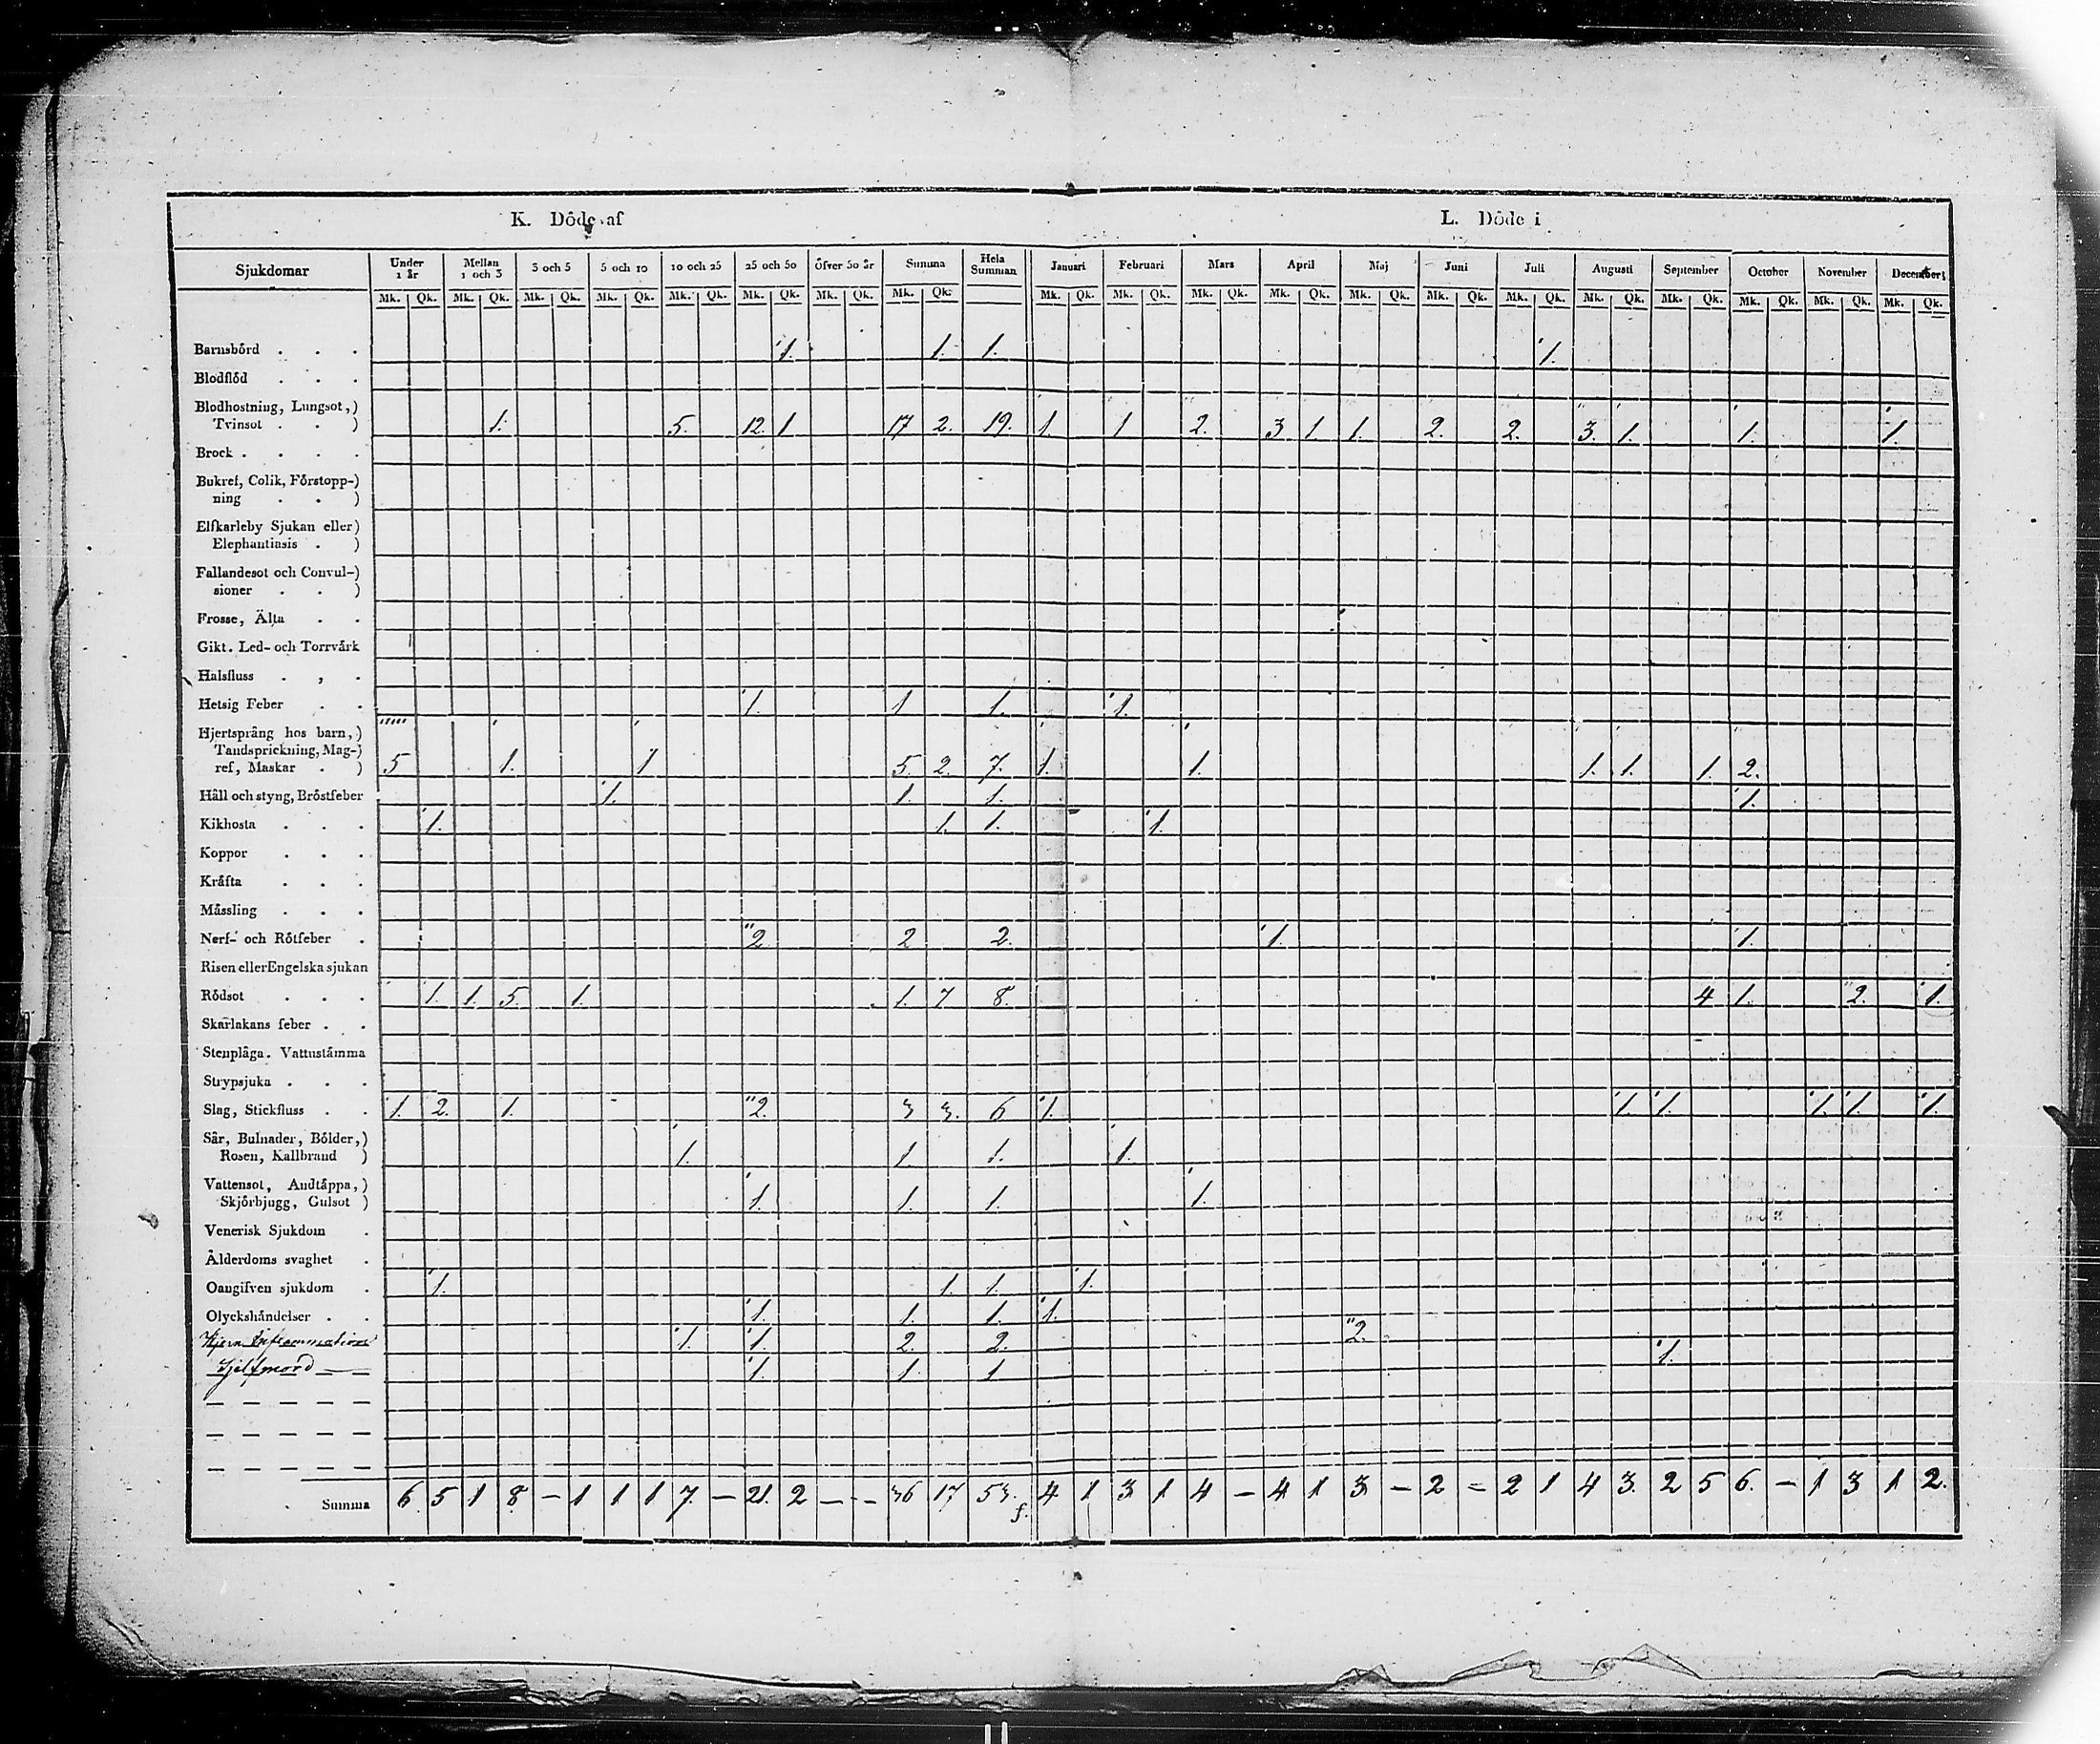 K. Döde af L. Döde i
Sjukdomar Under 1 år Mellan 1 och 3 3 och 5 5 och 10 10 och 25 25 och 50 Öfver 50 år Summa Hela Summan Januari Februari Mars April Maj Juni Juli Augusti September October November December
Mk. Qk. Mk. Qk. Mk. Qk. Mk. Qk. Mk. Qk. Mk. Qk. Mk. Qk. Mk. Qk. Mk. Qk. Mk. Qk. Mk. Qk. Mk. Qk. Mk. Qk. Mk. Qk. Mk. Qk. Mk. Qk. Mk. Qk. Mk. Qk. Mk. Qk. Mk. Qk.
Barnsbörd . . . 1. 1. 1. 1.
Blodflöd . . .
Blodhostning, Lungsot,)
Tvinsot . . ) 1. 5. 12. 1 17 2. 19. 1. 1 2. 3 1. 1. 2. 2. 3. 1. 1. 1.
Brock . . . .
Bukref, Colik, Förstopp-)
ning . . )
Elfkarleby Sjukan eller)
Elephantiasis . )
Fallandesot och Convul-)
sioner . . )
Frosse, Älta . .
Gikt. Led- och Torrvärk
Halsfluss . , .
Hetsig Feber . . 1. 1 1. 1.
Hjertsprång hos barn,)
Tandsprickning, Mag-)
ref, Maskar . ) 5 1. 1 5. 2. 7. 1. 1. 1. 1. 1. 2.
Håll och styng, Bröstfeber 1. 1. 1. 1.
Kikhosta . . . 1. 1. 1. 1.
Koppor . . .
Kräfta . . .
Mässling . . .
Nerf- och Rötfeber . 2 2 2. 1. 1.
Risen eller Engelska sjukan
Rödsot . . . 1. 1. 5. 1. 1. 7 8. 4 1. 2. 1.
Skarlakans feber . .
Stenplåga. Vattustämma
Strypsjuka . . .
Slag, Stickfluss . . 1. 2. 1. 2. 3 3. 6 1. 1. 1. 1. 1. 1.
Sår, Bulnader, Bölder,)
Rosen, Kallbrand ) 1. 1. 1. 1.
Vattensot, Andtäppa,)
Skjörbjugg, Gulsot ) 1. 1. 1. 1.
Venerisk Sjukdom .
Ålderdoms svaghet .
Oangifven sjukdom . 1. 1. 1. 1.
Olyckshändelser . . 1. 1. 1. 1.
Hjern Inflammation 1. 1. 2. 2. 2.
Sjelfmord 1. 1. 1 1.
Summa 6. 5 1 8 - 1 1 1 7. - 21. 2 - - 36 17 53. 4 1 3 1 4 - 4 1 3 - 2 = 2 1 4 3. 2 5 6. - 1 3 1 2.